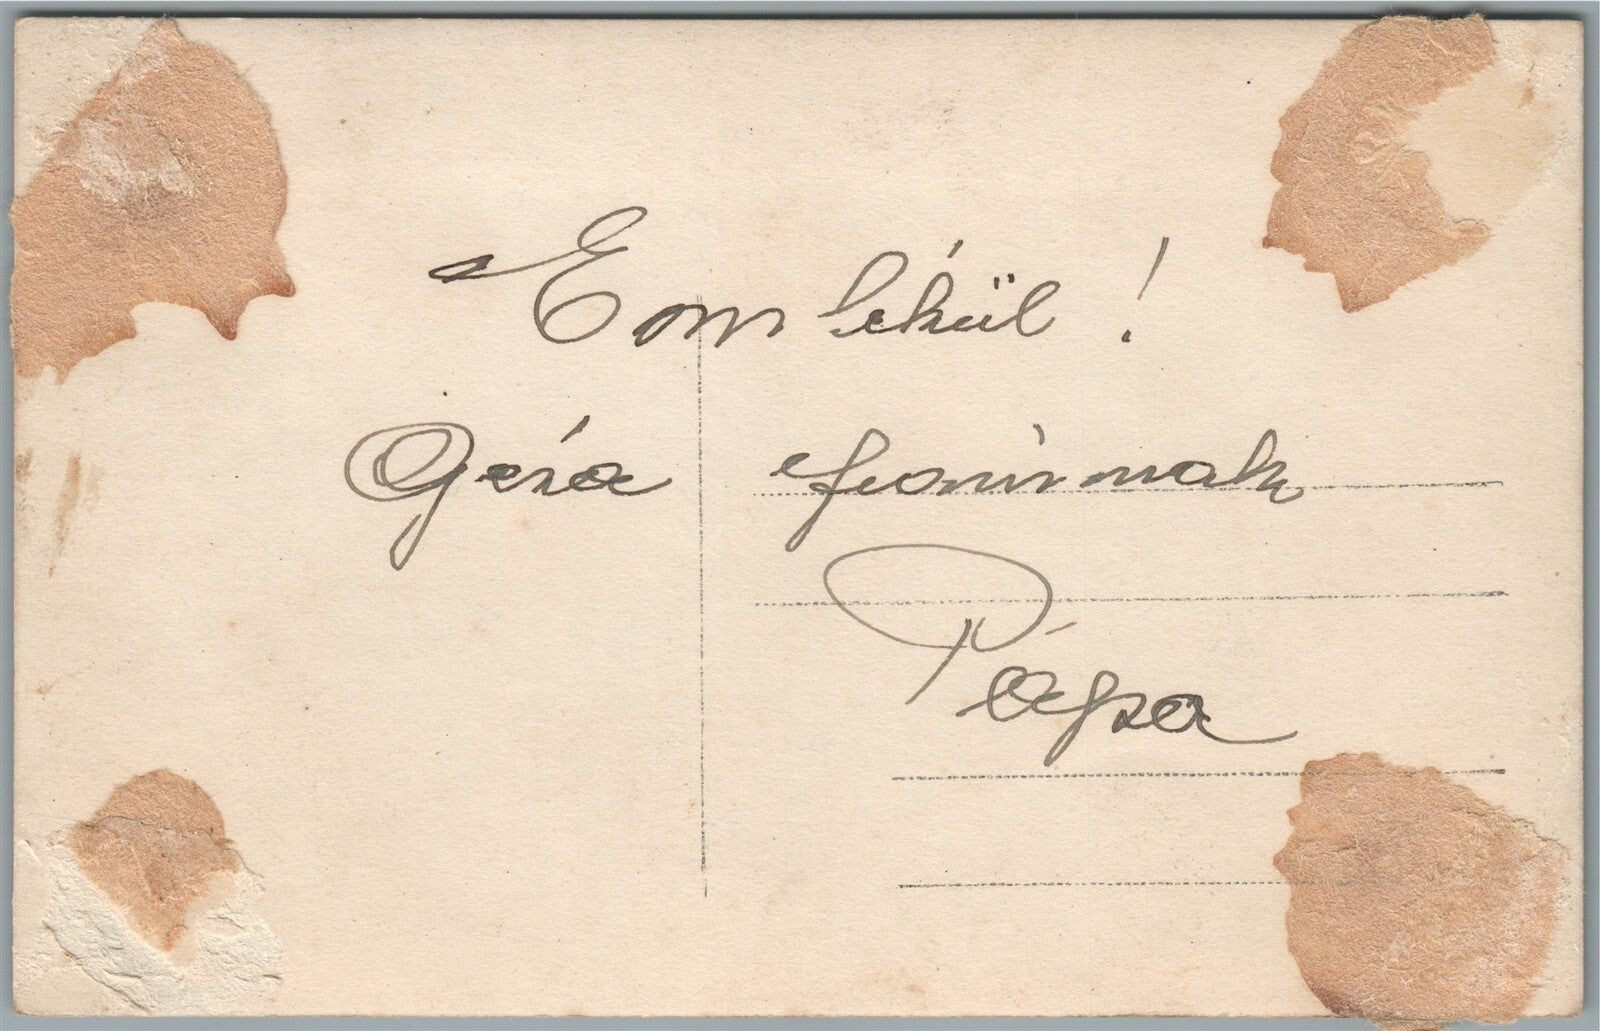 Emlékül!
Géza fiamnak
Pápa